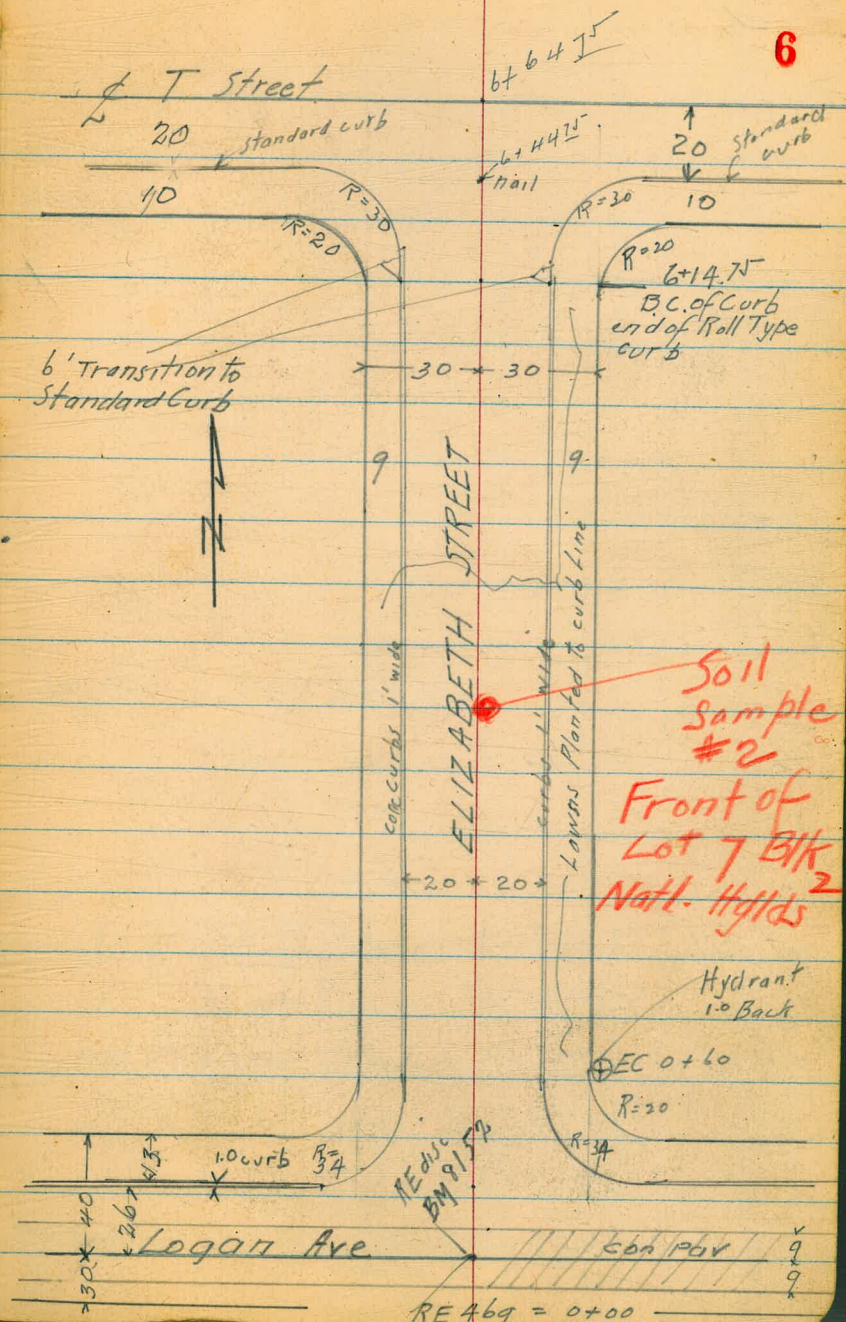 6
6+64 75
℄ T Street
20
standard curb
6+44 75
nail
20
Standard
curb
10
R=30
R=30
10
R=20
R=20
6+14.75
B.C. of Curb
end of Roll Type
curb
6' Transition to
Standard Curb
30
30
9
9
N
ELIZABETH STREET
conc curbs 1' wide
curbs 1' wide
Lawns Planted to curb Line
Soil
Sample
#2
Front of
Lot 7 Blk 2
Natl. Hylds
20
20
Hydrant
1.0 Back
EC 0+60
R=20
R=34
1.0 curb
R=
34
RE disc
40
26
30
Logan Ave
Con pav
9
9
RE 469 = 0+00